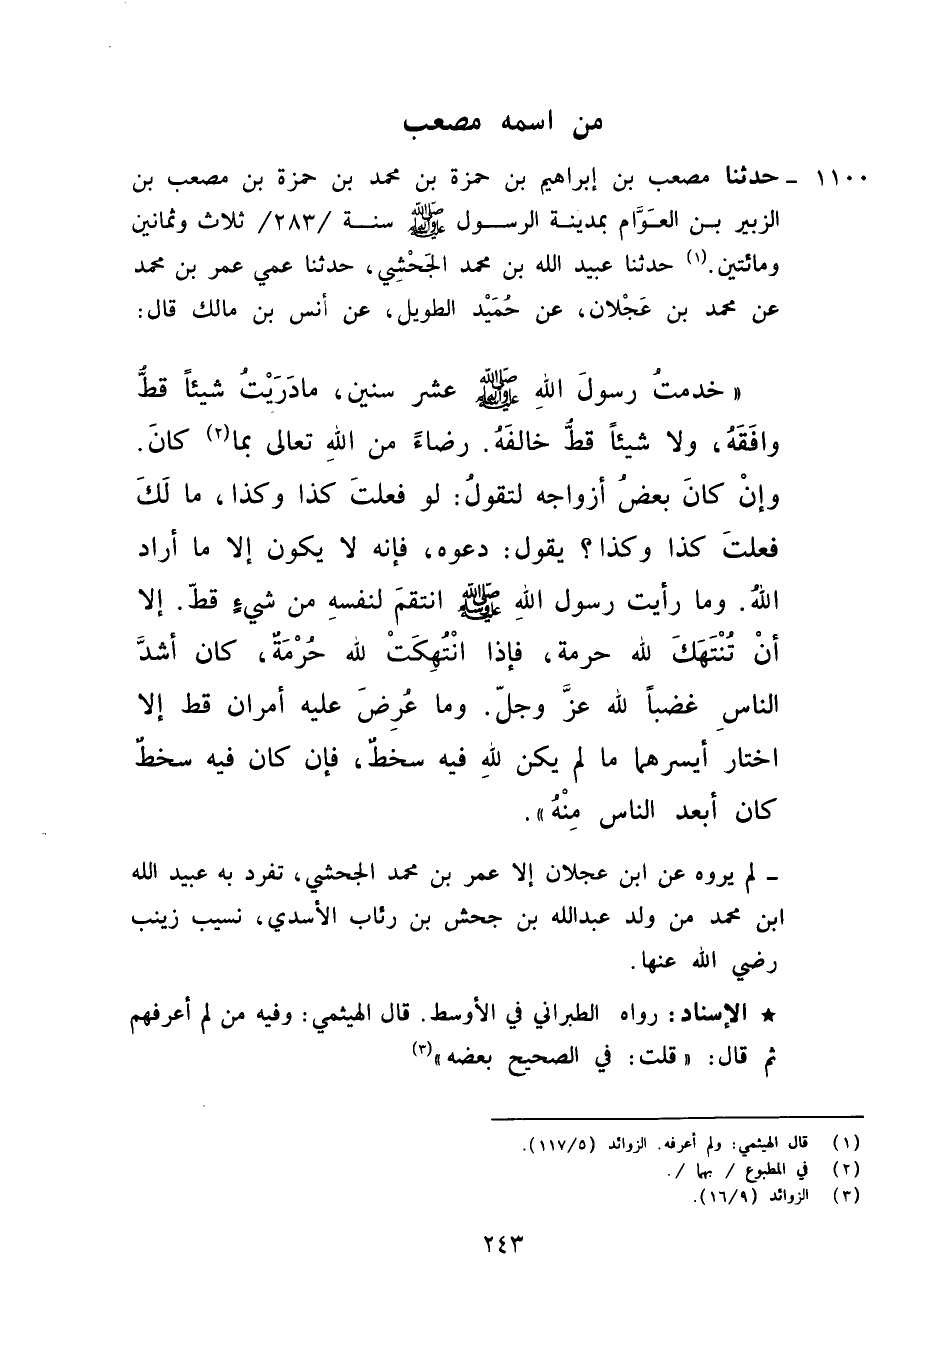 من اسمه مصعب
١١٠٠ ـ حدثنا مصعب بن إبراهيم بن حمزة بن محمد بن حمزة بن مصعب بن
الزبير بن العوَّام بمدينة الرسول ﷺ سنة /٢٨٣/ ثلاث وثمانين
ومائتين.(١) حدثنا عبيد الله بن محمد الجَحْشِي، حدثنا عمي عمر بن محمد
عن محمد بن عَجْلان، عن حُمَيْد الطويل، عن أنس بن مالك قال:
« خدمتُ رسولَ اللهِ ﷺ عشر سنين، مادَرَيْتُ شيئاً قطُّ
وافَقَهُ، ولا شيئاً قطُّ خالفَهُ. رضاءً من اللهِ تعالى بما(٢) كانَ.
وإنْ كانَ بعضُ أزواجه لتقولُ: لو فعلتَ كذا وكذا، ما لَكَ
فعلتَ كذا وكذا؟ يقول: دعوه، فإنه لا يكون إلا ما أراد
اللهُ. وما رأيت رسول اللهِ ﷺ انتقمَ لنفسهِ من شيءٍ قطّ. إلا
أنْ تُنْتَهَكَ لله حرمة، فإذا انْتُهِكَتْ لله حُرْمَةٌ، كان أشدَّ
الناسِ غضباً لله عزَّ وجلّ. وما عُرِضَ عليه أمران قط إلا
اختار أيسرهما ما لم يكن للهِ فيه سخطٌ، فإن كان فيه سخطٌ
كان أبعد الناس مِنْهُ».
ـ لم يروه عن ابن عجلان إلا عمر بن محمد الجحشي، تفرد به عبيد الله
ابن محمد من ولد عبدالله بن جحش بن رئاب الأسدي، نسيب زينب
رضي الله عنها.
★ الإسناد: رواه الطبراني في الأوسط. قال الهيثمي: وفيه من لم أعرفهم
ثم قال: « قلت: في الصحيح بعضه»(٣)
(١) قال الهيثمي: ولم أعرفه. الزوائد (١١٧/٥).
(٢) في المطبوع / بها /.
(٣) الزوائد (١٦/٩).
٢٤٣